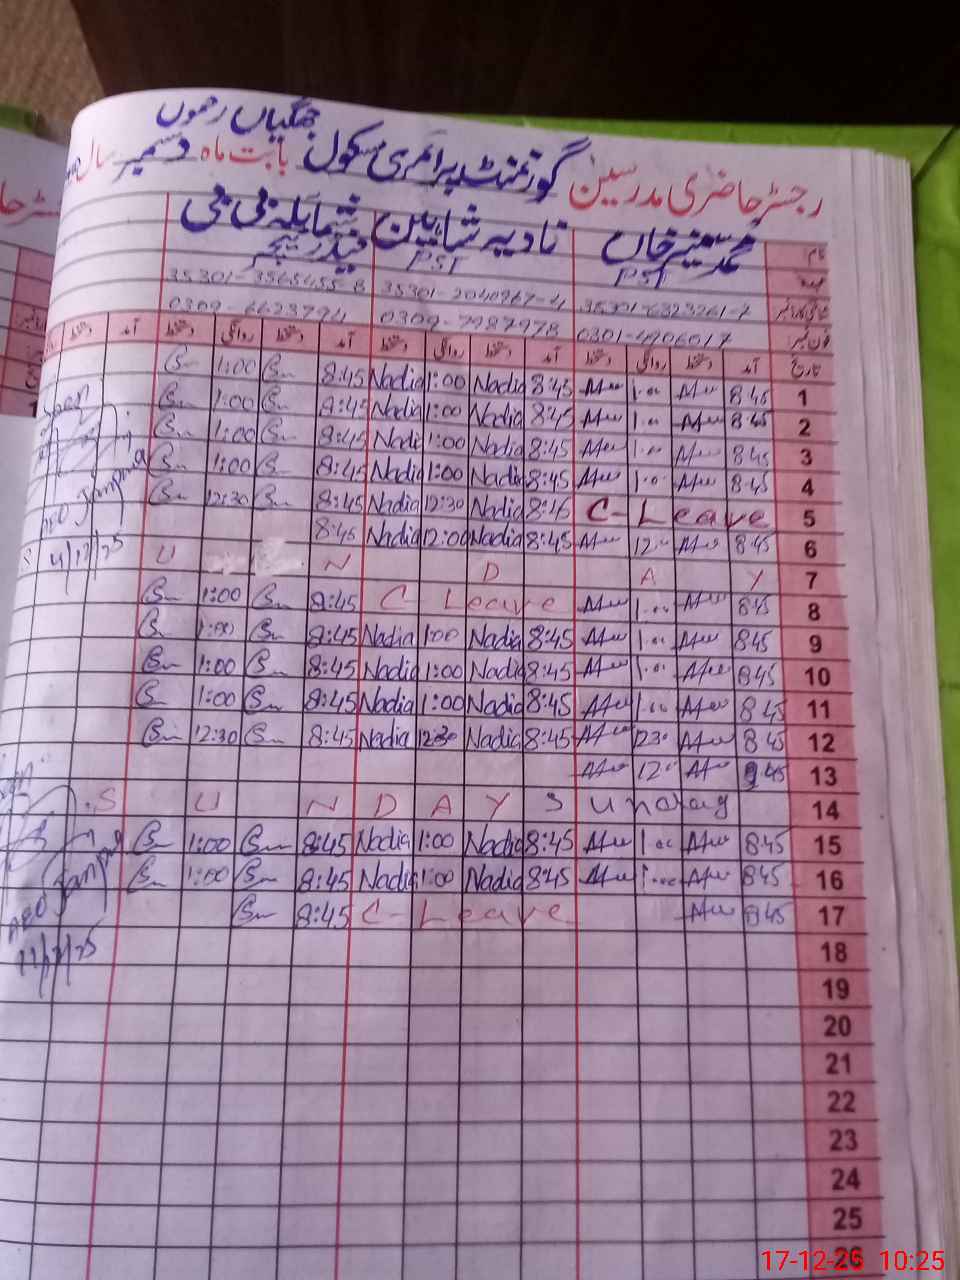 جھگیاں رحموں
رجسٹر حاضری مدرسین گورنمنٹ پرائمری سکول بابت ماہ دسمبر سال
نام محمد منیر خاں نادیہ شاہین شمائلہ بی بی
عہدہ PST PST ہیڈ ٹیچر
35301-6323261-7 35301-2040967-4 35301-3565455-8
فون نمبر 0301-4906017 0309-7987978 0309-6623794
تاریخ آمد دستخط روانگی دستخط آمد دستخط روانگی دستخط آمد دستخط روانگی دستخط آمد دستخط
1:00 8:45 Nadia 1:00 Nadia 8:45 1:00 8:45 1
1:00 8:45 Nadia 1:00 Nadia 8:45 1:00 8:45 2
1:00 8:45 Nadia 1:00 Nadia 8:45 1:00 8:45 3
1:00 8:45 Nadia 1:00 Nadia 8:45 1:00 8:45 4
12:30 8:45 Nadia 12:30 Nadia 8:45 C-Leave 5
8:45 Nadia 12:00 Nadia 8:45 12:00 8:45 6
U N D A Y 7
1:00 8:45 C Leave 1:00 8:45 8
1:00 8:45 Nadia 1:00 Nadia 8:45 1:00 8:45 9
1:00 8:45 Nadia 1:00 Nadia 8:45 1:00 8:45 10
1:00 8:45 Nadia 1:00 Nadia 8:45 1:00 8:45 11
12:30 8:45 Nadia 12:30 Nadia 8:45 12:30 8:45 12
12:00 8:45 13
S U N D A Y Sunday 14
1:00 8:45 Nadia 1:00 Nadia 8:45 1:00 8:45 15
1:00 8:45 Nadia 1:00 Nadia 8:45 1:00 8:45 16
8:45 C-Leave 8:45 17
18
19
20
21
22
23
24
25
26
4/12/25
AEO
11/12/25
17-12-25 10:25